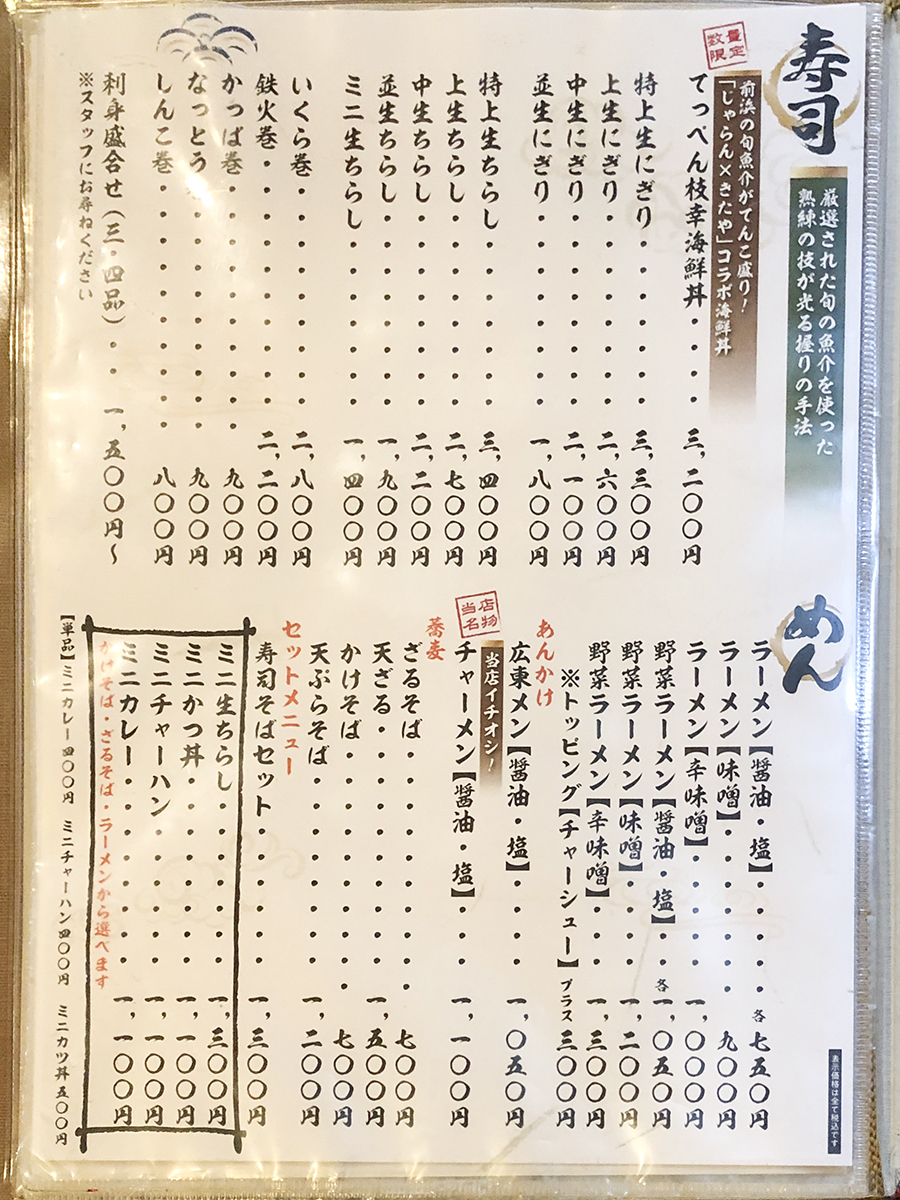 寿司
厳選された旬の魚介を使った
熟練の技が光る握りの手法
前浜の旬魚介がてんこ盛り！
「じゃらん×きたや」コラボ海鮮丼
数量限定
てっぺん枝幸海鮮丼・・・・三，二〇〇円
特上生にぎり・・・・・・・三，三〇〇円
上生にぎり・・・・・・・・二，六〇〇円
中生にぎり・・・・・・・・二，一〇〇円
並生にぎり・・・・・・・・一，八〇〇円
特上生ちらし・・・・・・・三，四〇〇円
上生ちらし・・・・・・・・二，七〇〇円
中生ちらし・・・・・・・・二，二〇〇円
並生ちらし・・・・・・・・一，九〇〇円
ミニ生ちらし・・・・・・・一，四〇〇円
いくら巻・・・・・・・・・二，八〇〇円
鉄火巻・・・・・・・・・・二，二〇〇円
かっぱ巻・・・・・・・・・・九〇〇円
なっとう・・・・・・・・・・九〇〇円
しんこ巻・・・・・・・・・・八〇〇円
刺身盛合せ（三・四品）・・一，五〇〇円～
※スタッフにお尋ねください
めん
ラーメン【醤油・塩】・・・・各七五〇円
ラーメン【味噌】・・・・・・九〇〇円
ラーメン【辛味噌】・・・・・一，〇〇〇円
野菜ラーメン【醤油・塩】・・各一，〇五〇円
野菜ラーメン【味噌】・・・・一，二〇〇円
野菜ラーメン【辛味噌】・・・一，三〇〇円
※トッピング【チャーシュー】プラス三〇〇円
あんかけ
広東メン【醤油・塩】・・・・一，〇五〇円
当店イチオシ！
当店名物
チャーメン【醤油・塩】・・・一，一〇〇円
蕎麦
ざるそば・・・・・・・・・・七〇〇円
天ざる・・・・・・・・・・一，五〇〇円
かけそば・・・・・・・・・・七〇〇円
天ぷらそば・・・・・・・・一，二〇〇円
セットメニュー
寿司そばセット・・・・・・一，三〇〇円
ミニ生ちらし・・・・・・・一，三〇〇円
ミニかつ丼・・・・・・・・一，一〇〇円
ミニチャーハン・・・・・・一，一〇〇円
ミニカレー・・・・・・・・一，一〇〇円
かけそば・ざるそば・ラーメンから選べます
【単品】ミニカレー四〇〇円 ミニチャーハン四〇〇円 ミニカツ丼五〇〇円
表示価格は全て税込です